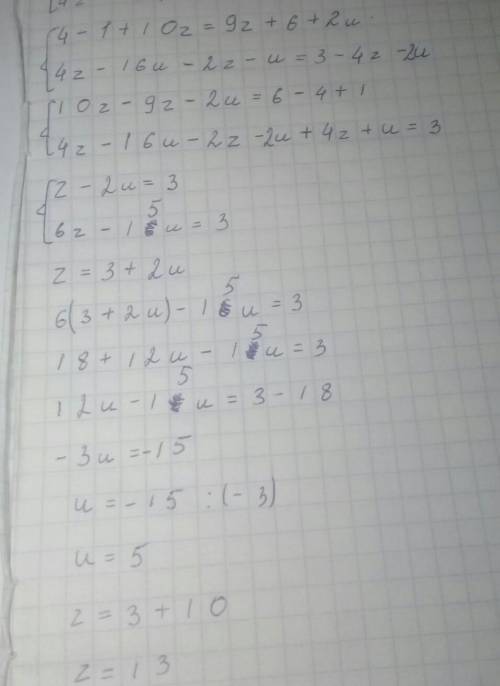 4 - 1 + 10z = 9z + 6 + 2u
4z - 16u - 2z - u = 3 - 4z - 2u
10z - 9z - 2u = 6 - 4 + 1
4z - 16u - 2z - 2u + 4z + u = 3
z - 2u = 3
6z - 15u = 3
z = 3 + 2u
6(3 + 2u) - 15u = 3
18 + 12u - 15u = 3
12u - 15u = 3 - 18
-3u = -15
u = -15 : (-3)
u = 5
z = 3 + 10
z = 13